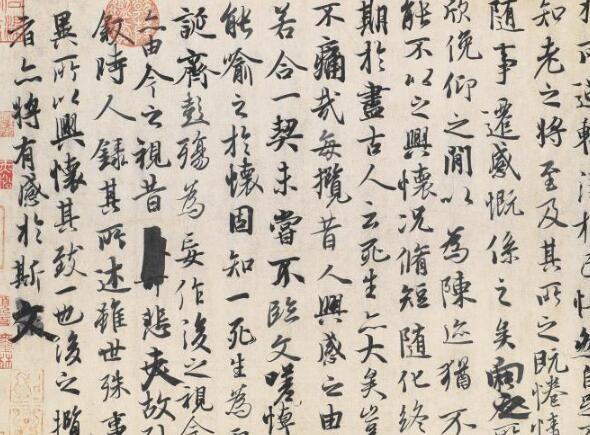 所遇暫得於己怏然自足
知老之將至及其所之既惓情
隨事遷感慨係之矣向之所
欣俛仰之閒以為陳迹猶不
能不以之興懷況脩短隨化終
期於盡古人云死生亦大矣豈
不痛哉每攬昔人興感之由
若合一契未嘗不臨文嗟悼
能喻之於懷固知一死生為
誕齊彭殤為妄作後之視今
亦由今之視昔悲夫故列
敘時人錄其所述雖世殊事
異所以興懷其致一也後之攬
者亦將有感於斯文